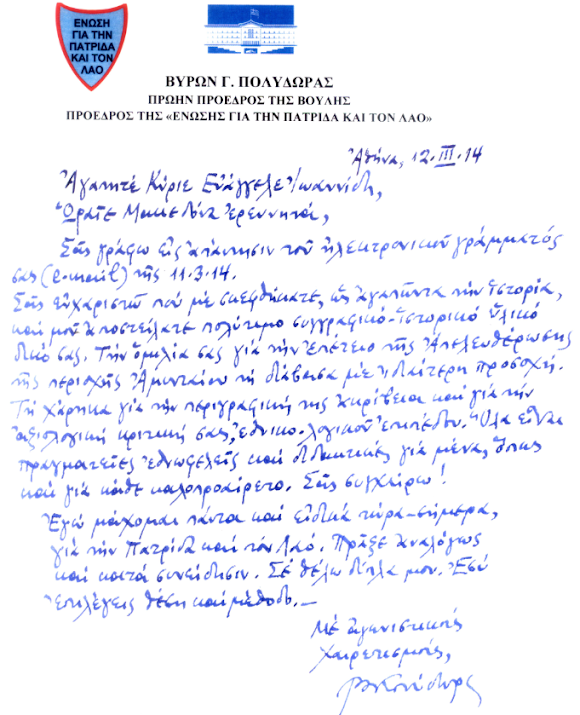 ΕΝΩΣΗ
ΓΙΑ ΤΗΝ
ΠΑΤΡΙΔΑ
ΚΑΙ ΤΟΝ
ΛΑΟ
ΒΥΡΩΝ Γ. ΠΟΛΥΔΩΡΑΣ
ΠΡΩΗΝ ΠΡΟΕΔΡΟΣ ΤΗΣ ΒΟΥΛΗΣ
ΠΡΟΕΔΡΟΣ ΤΗΣ «ΕΝΩΣΗΣ ΓΙΑ ΤΗΝ ΠΑΤΡΙΔΑ ΚΑΙ ΤΟΝ ΛΑΟ»
Ἀθήνα, 12.III.14
Ἀγαπητέ Κύριε Εὐάγγελε Ἰωαννίδη,
Ὡραῖε Μακεδόνα Ἐρευνητά,
Σᾶς γράφω εἰς ἀπάντησιν τοῦ ἠλεκτρονικοῦ γράμματός
σας (e-mail) τῆς 11.3.14.
Σᾶς εὐχαριστῶ πού μέ σκεφθήκατε, ὡς ἀγαπῶντα τήν Ἱστορία,
καί μοῦ ἀποστείλατε πολύτιμο συγγραφικό-ἱστορικό ὑλικό
δικό σας. Τήν ὁμιλία σας γιά τήν ἐπέτειο τῆς Ἀπελευθέρωσης
τῆς περιοχῆς Ἀμυνταίου τή διάβασα μέ ἰδιαίτερη προσοχή.
Τή χάρηκα γιά τήν περιγραφική της ἀκρίβεια καί γιά τήν
ἀξιολογική κριτική σας, ἐθνικο-λογικοῦ ἐπιπέδου. Ὅλα εἶναι
πραγματεῖες ἐθνωφελεῖς καί διδακτικές γιά μένα, ὅπως
καί γιά κάθε καλοπροαίρετο. Σᾶς συγχαίρω!
Ἐγώ μάχομαι πάντα καί εἰδικά τώρα-σήμερα,
γιά τήν Πατρίδα καί τόν Λαό. Πρᾶξε ἀναλόγως
καί κατά συνείδησιν. Σέ θέλω δίπλα μου. Ἐσύ
ἐπιλέγεις θέση καί μέθοδο.—
Μέ ἀγωνιστικούς
χαιρετισμούς,